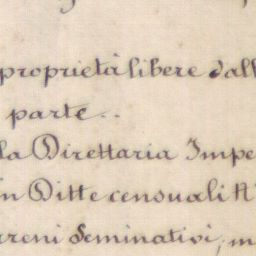 proprietà libere dall
parte..
la Direttaria Impe
in Ditte censuali
rreni Seminativi, m